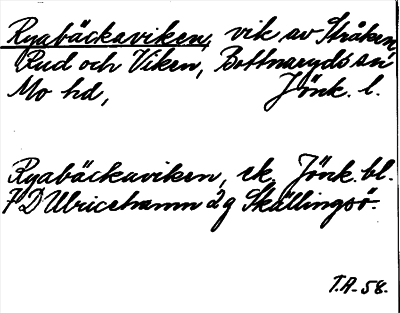 Ryabäckaviken, vik av Stråken,
Rud och Viken, Bottnaryds sn
Mo hd, Jönk. l.
Ryabäckaviken, ek. Jönk. bl.
7 D Ulricehamn 2g Skällingsö.
T.A-58.